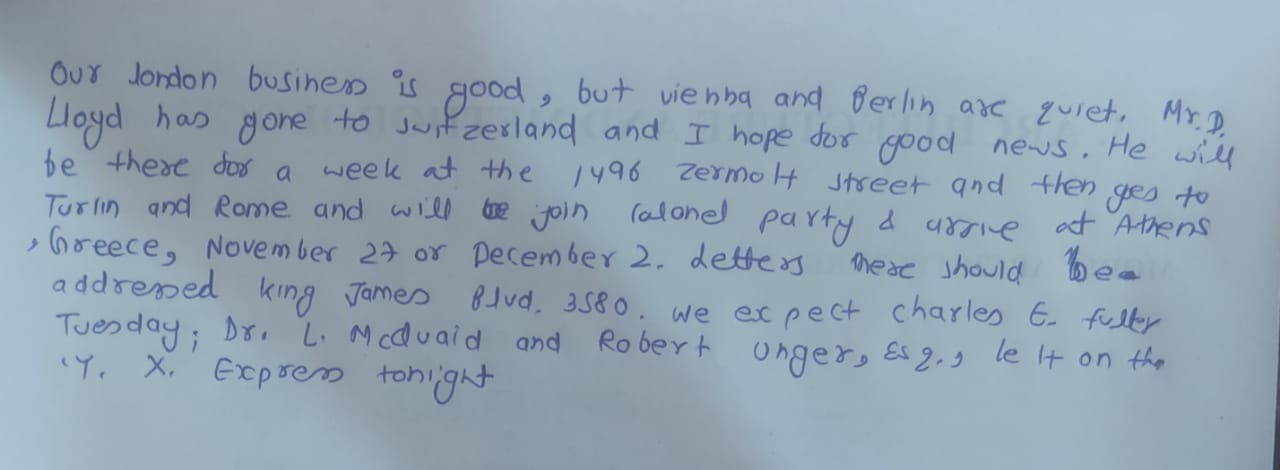 Our london business is good, but vienna and Berlin are quiet. Mr. D.
Lloyd has gone to switzerland and I hope for good news. He will
be there for a week at the 1496 zermolt street and then ges to
Turlin and Rome and will join Colonel party & arrive at Athens
, Greece, November 27 or December 2. Letters there should be
addressed king James Blvd. 3580. we expect charles E. fuller
Tuesday; Dr. L. McQuaid and Robert Unger, Esq., left on the
'Y. X. Express tonight